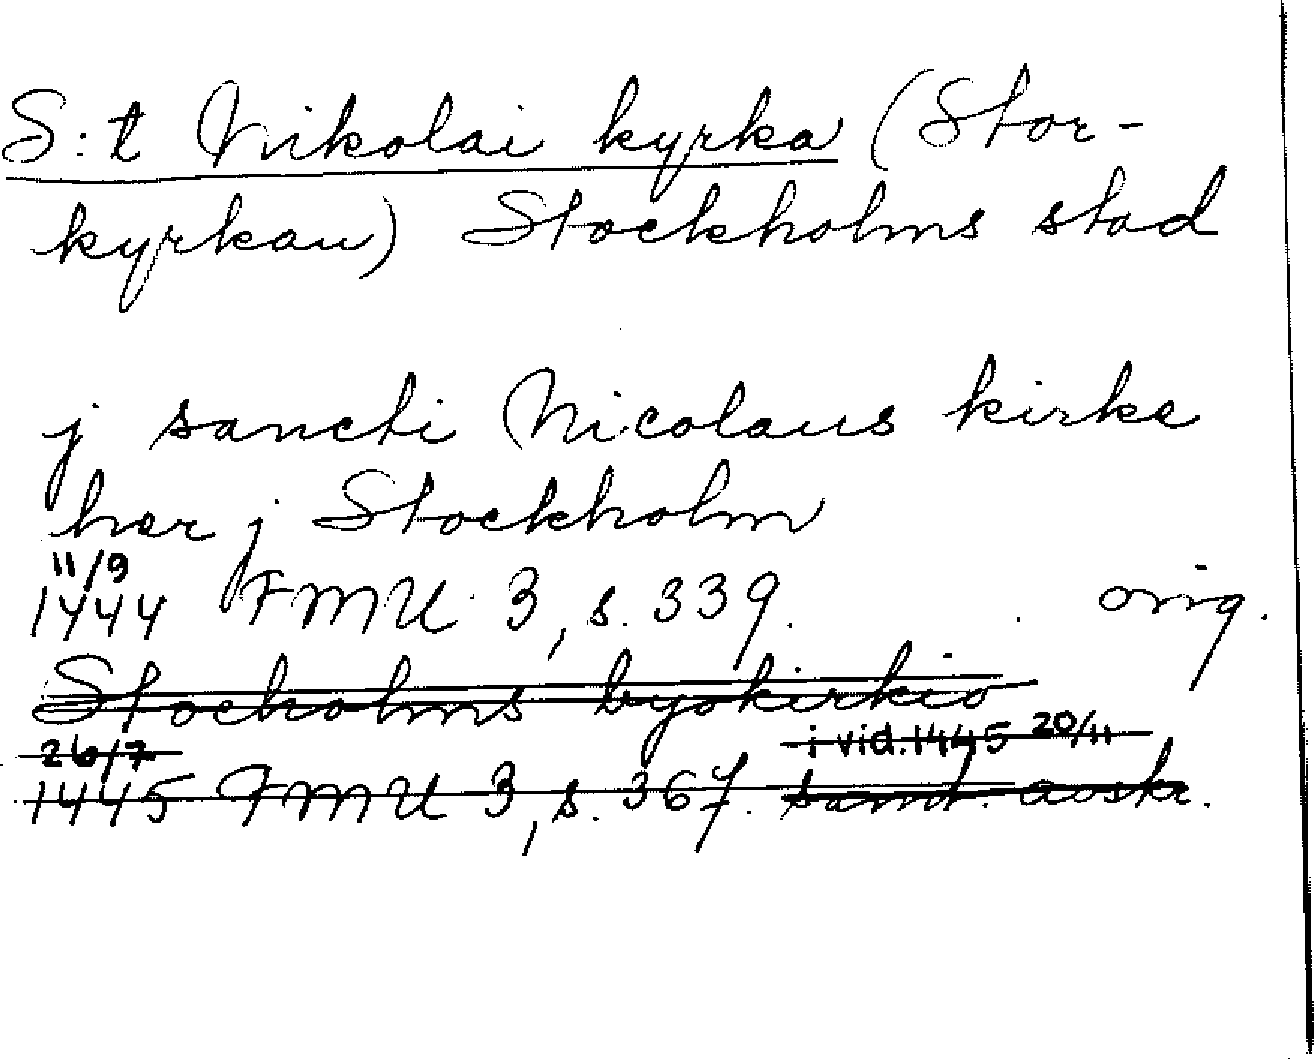 S:t Nikolai kyrka (Stor-
kyrkan) Stockholms stad
j sancti Nicolaus kirke
her j Stockholm
11/9
1444 FMU 3, s. 339. orig.
Stocholms byokirkio
26/7 i vid. 1445 20/11
1445 FMU 3, s. 367. samt. avskr.